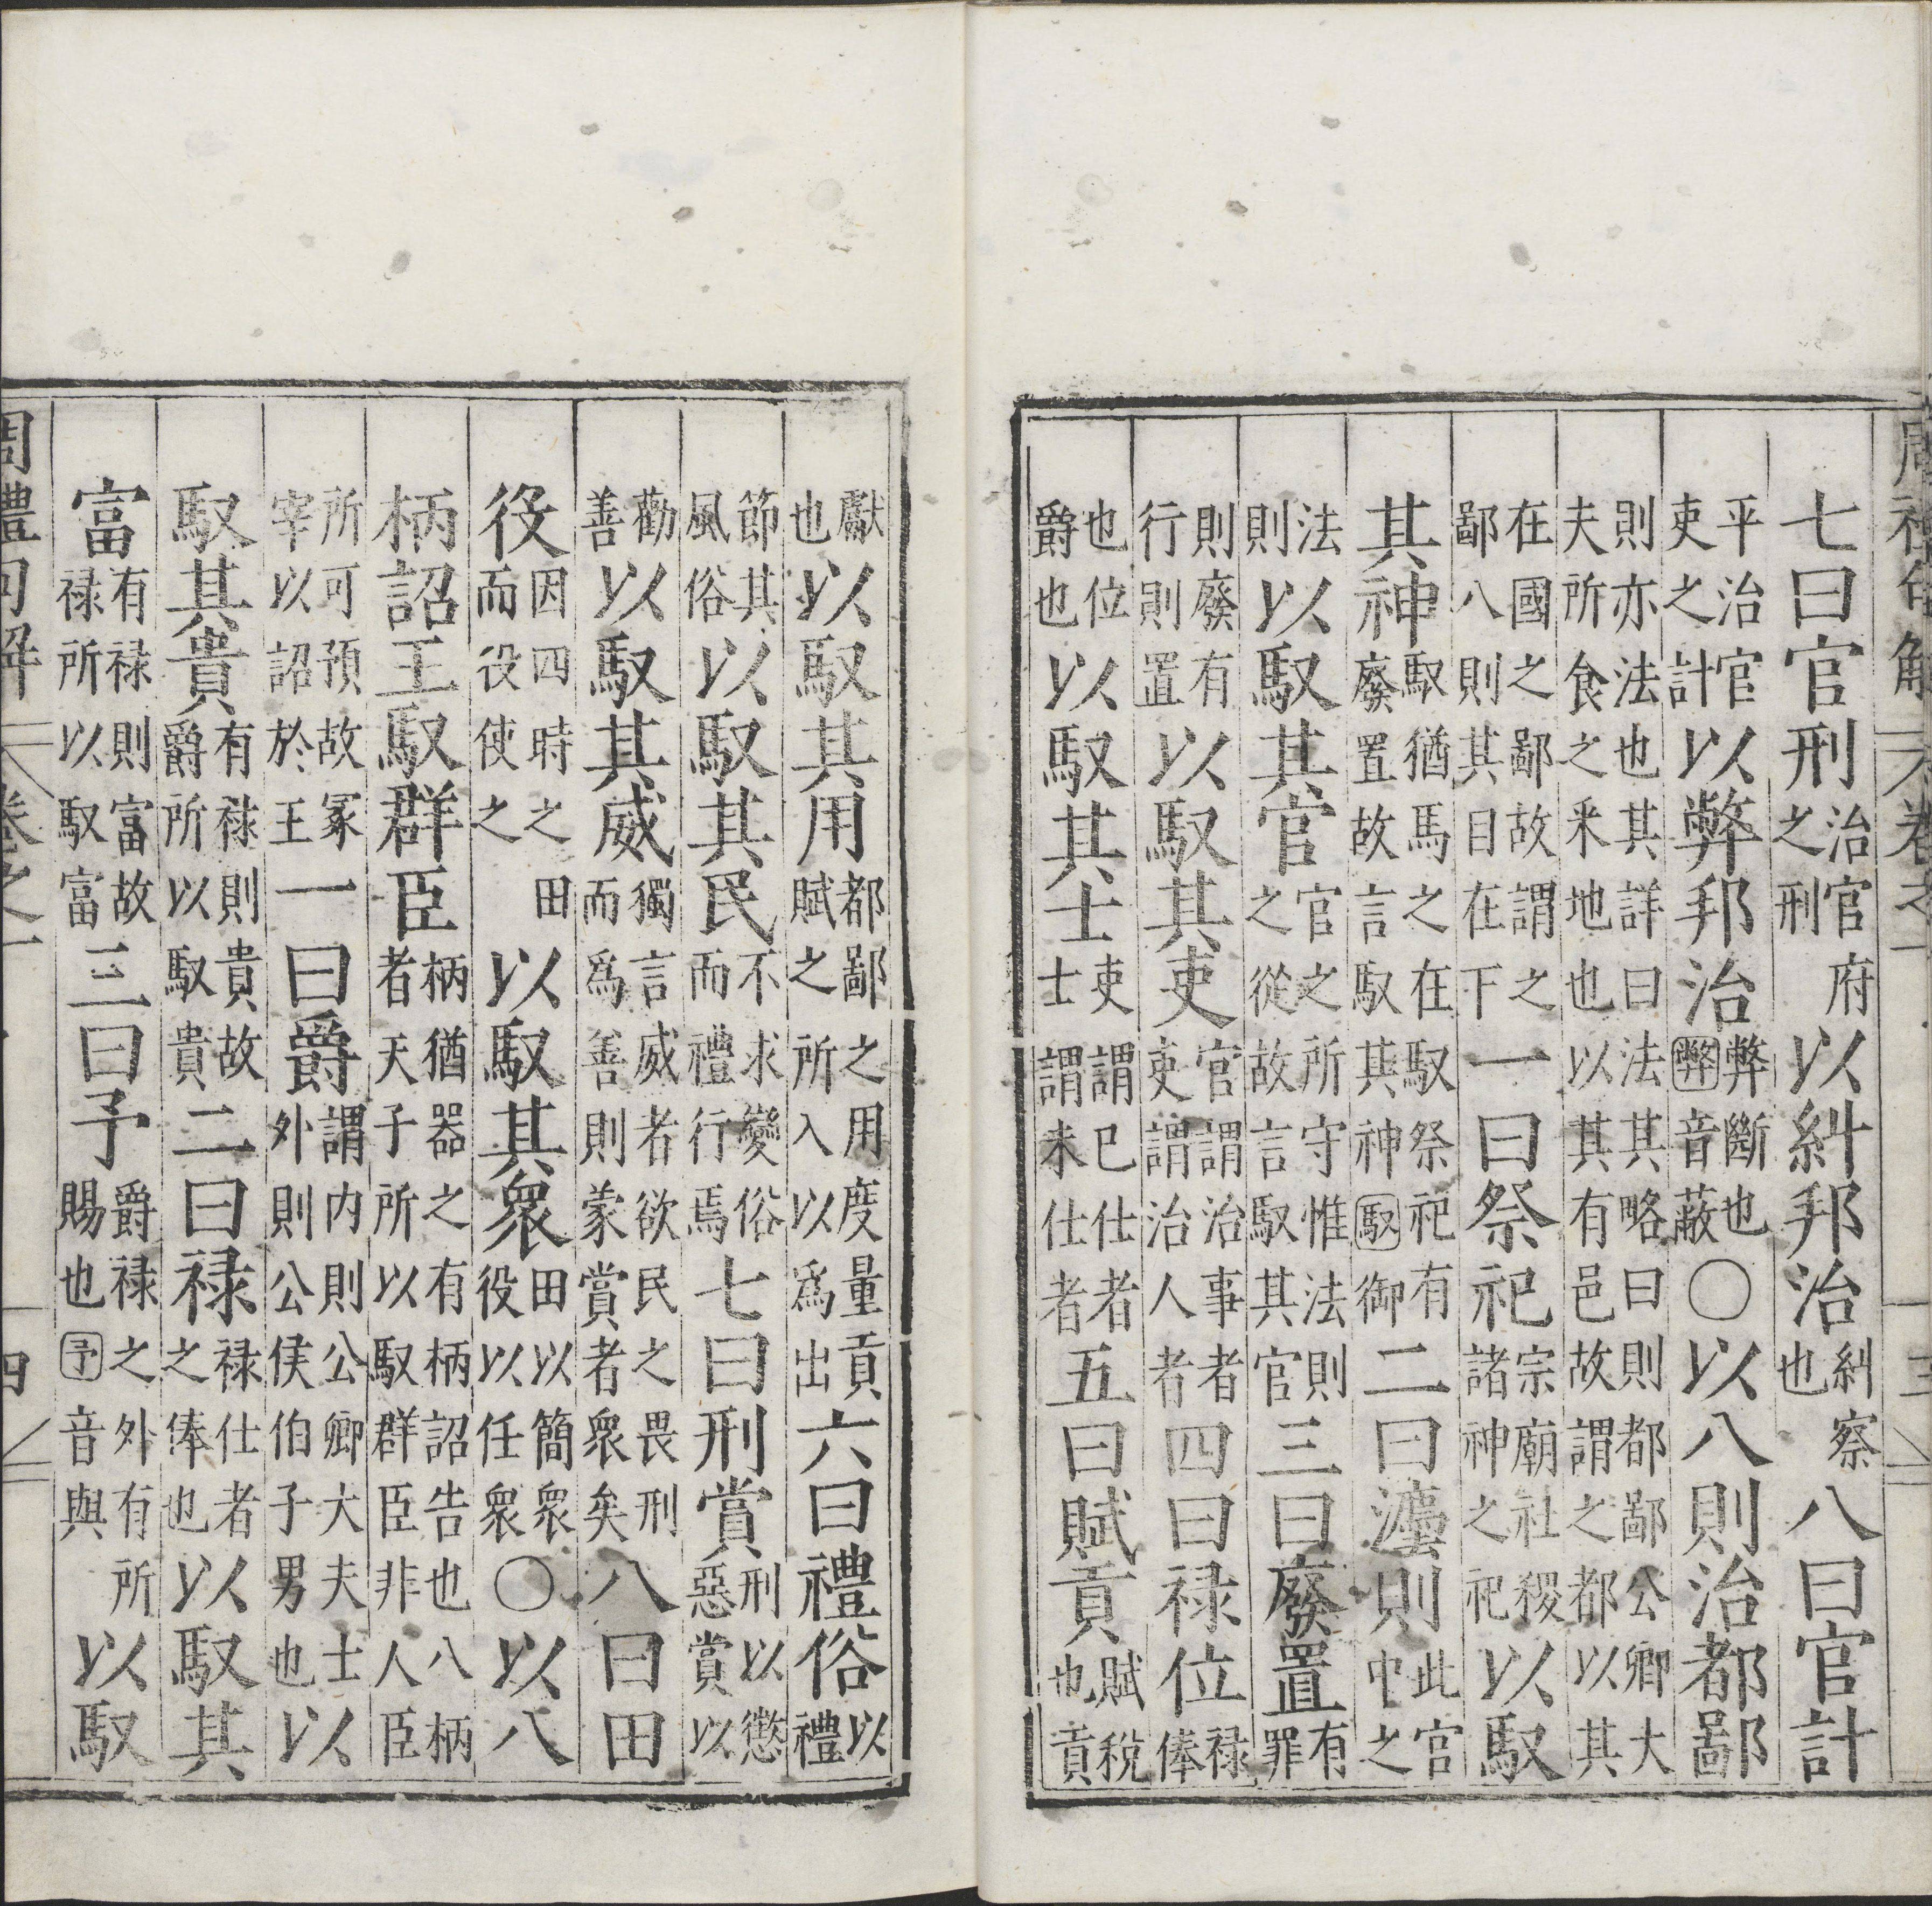 周禮句解 卷之一 三
七曰官刑治官府之刑以糾邦治糾察也八曰官計
平治官吏之計以弊邦治弊斷也弊音蔽〇以八則治都鄙
則亦法也其詳曰法其略曰則都鄙公卿大夫所食之釆地也以其有邑故謂之都以其
在國之鄙故謂之鄙八則其目在下一曰祭祀宗廟社稷諸神之祀以馭
其神馭猶馬之在馭祭祀有廢置故言馭其神馭御二曰灋則此官中之
法則以馭其官官之所守惟法則之從故言馭其官三曰廢置有罪
則廢有行則置以馭其吏官謂治事者吏謂治人者四曰禄位禄俸
也位爵也以馭其士吏謂已仕者士謂未仕者五曰賦貢賦稅也貢
獻也以馭其用都鄙之用度量貢賦之所入以爲出六曰禮俗以禮
節其風俗以馭其民不求變俗而禮行焉七曰刑賞刑以懲惡賞以
勸善以馭其威獨言威者欲民之畏刑而爲善則蒙賞者衆矣八曰田
役因四時之田而役使之以馭其衆田以簡衆役以任衆〇以八
柄詔王馭群臣柄猶器之有柄詔告也八柄者天子所以馭群臣非人臣
所可預故冢宰以詔於王一曰爵謂内則公卿大夫士外則公侯伯子男也以
馭其貴有禄則貴故爵所以馭貴二曰禄禄仕者之俸也以馭其
富有禄則富故禄所以馭富三曰予爵禄之外有所賜也予音與以馭
周禮句解 卷之一 四